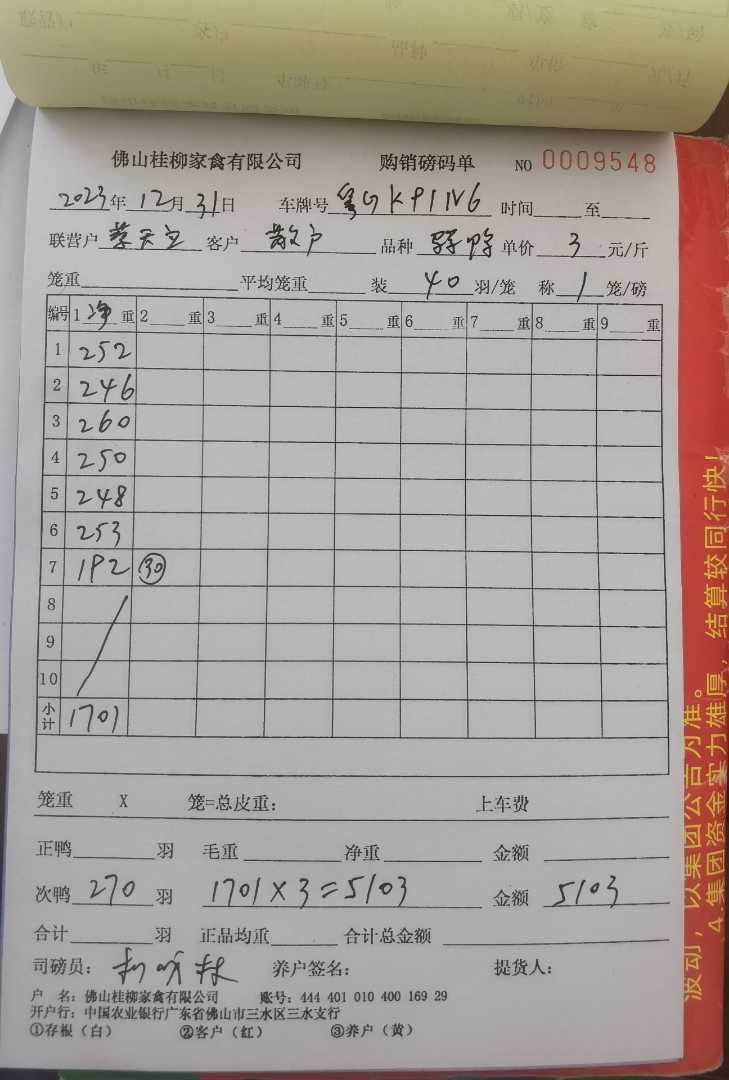 佛山桂柳家禽有限公司 购销磅码单 NO 0009548
2023年 12月 31日 车牌号 时间 至
联营户 蔡天 客户 散户 品种 单价 3 元/斤
笼重 平均笼重 装 40 羽/笼 称 1 笼/磅
编号 1 净 重 2 重 3 重 4 重 5 重 6 重 7 重 8 重 9 重
1 252
2 246
3 260
4 250
5 248
6 253
7 192 30
8
9
10
小计 1701
笼重 X 笼=总皮重： 上车费
正鸭 羽 毛重 净重 金额
次鸭 270 羽 1701×3=5103 金额 5103
合计 羽 正品均重 合计总金额
司磅员： 养户签名： 提货人：
户 名：佛山桂柳家禽有限公司 账号：444 401 010 400 169 29
开户行：中国农业银行广东省佛山市三水区三水支行
①存根（白） ②客户（红） ③养户（黄）
结算较同行快！
波动，以集团公告为准。
4.集团资金实力雄厚，